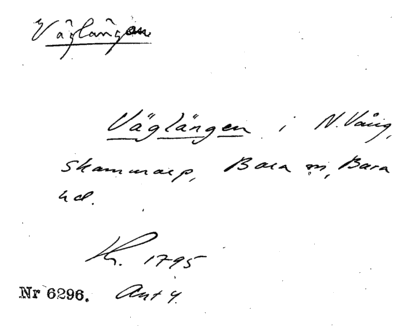 Väglängen
Väglängen i N. Vång,
Skammarp, Bara sn, Bara
hd.
Kr. 1795
Nr 6296. Akt 4.